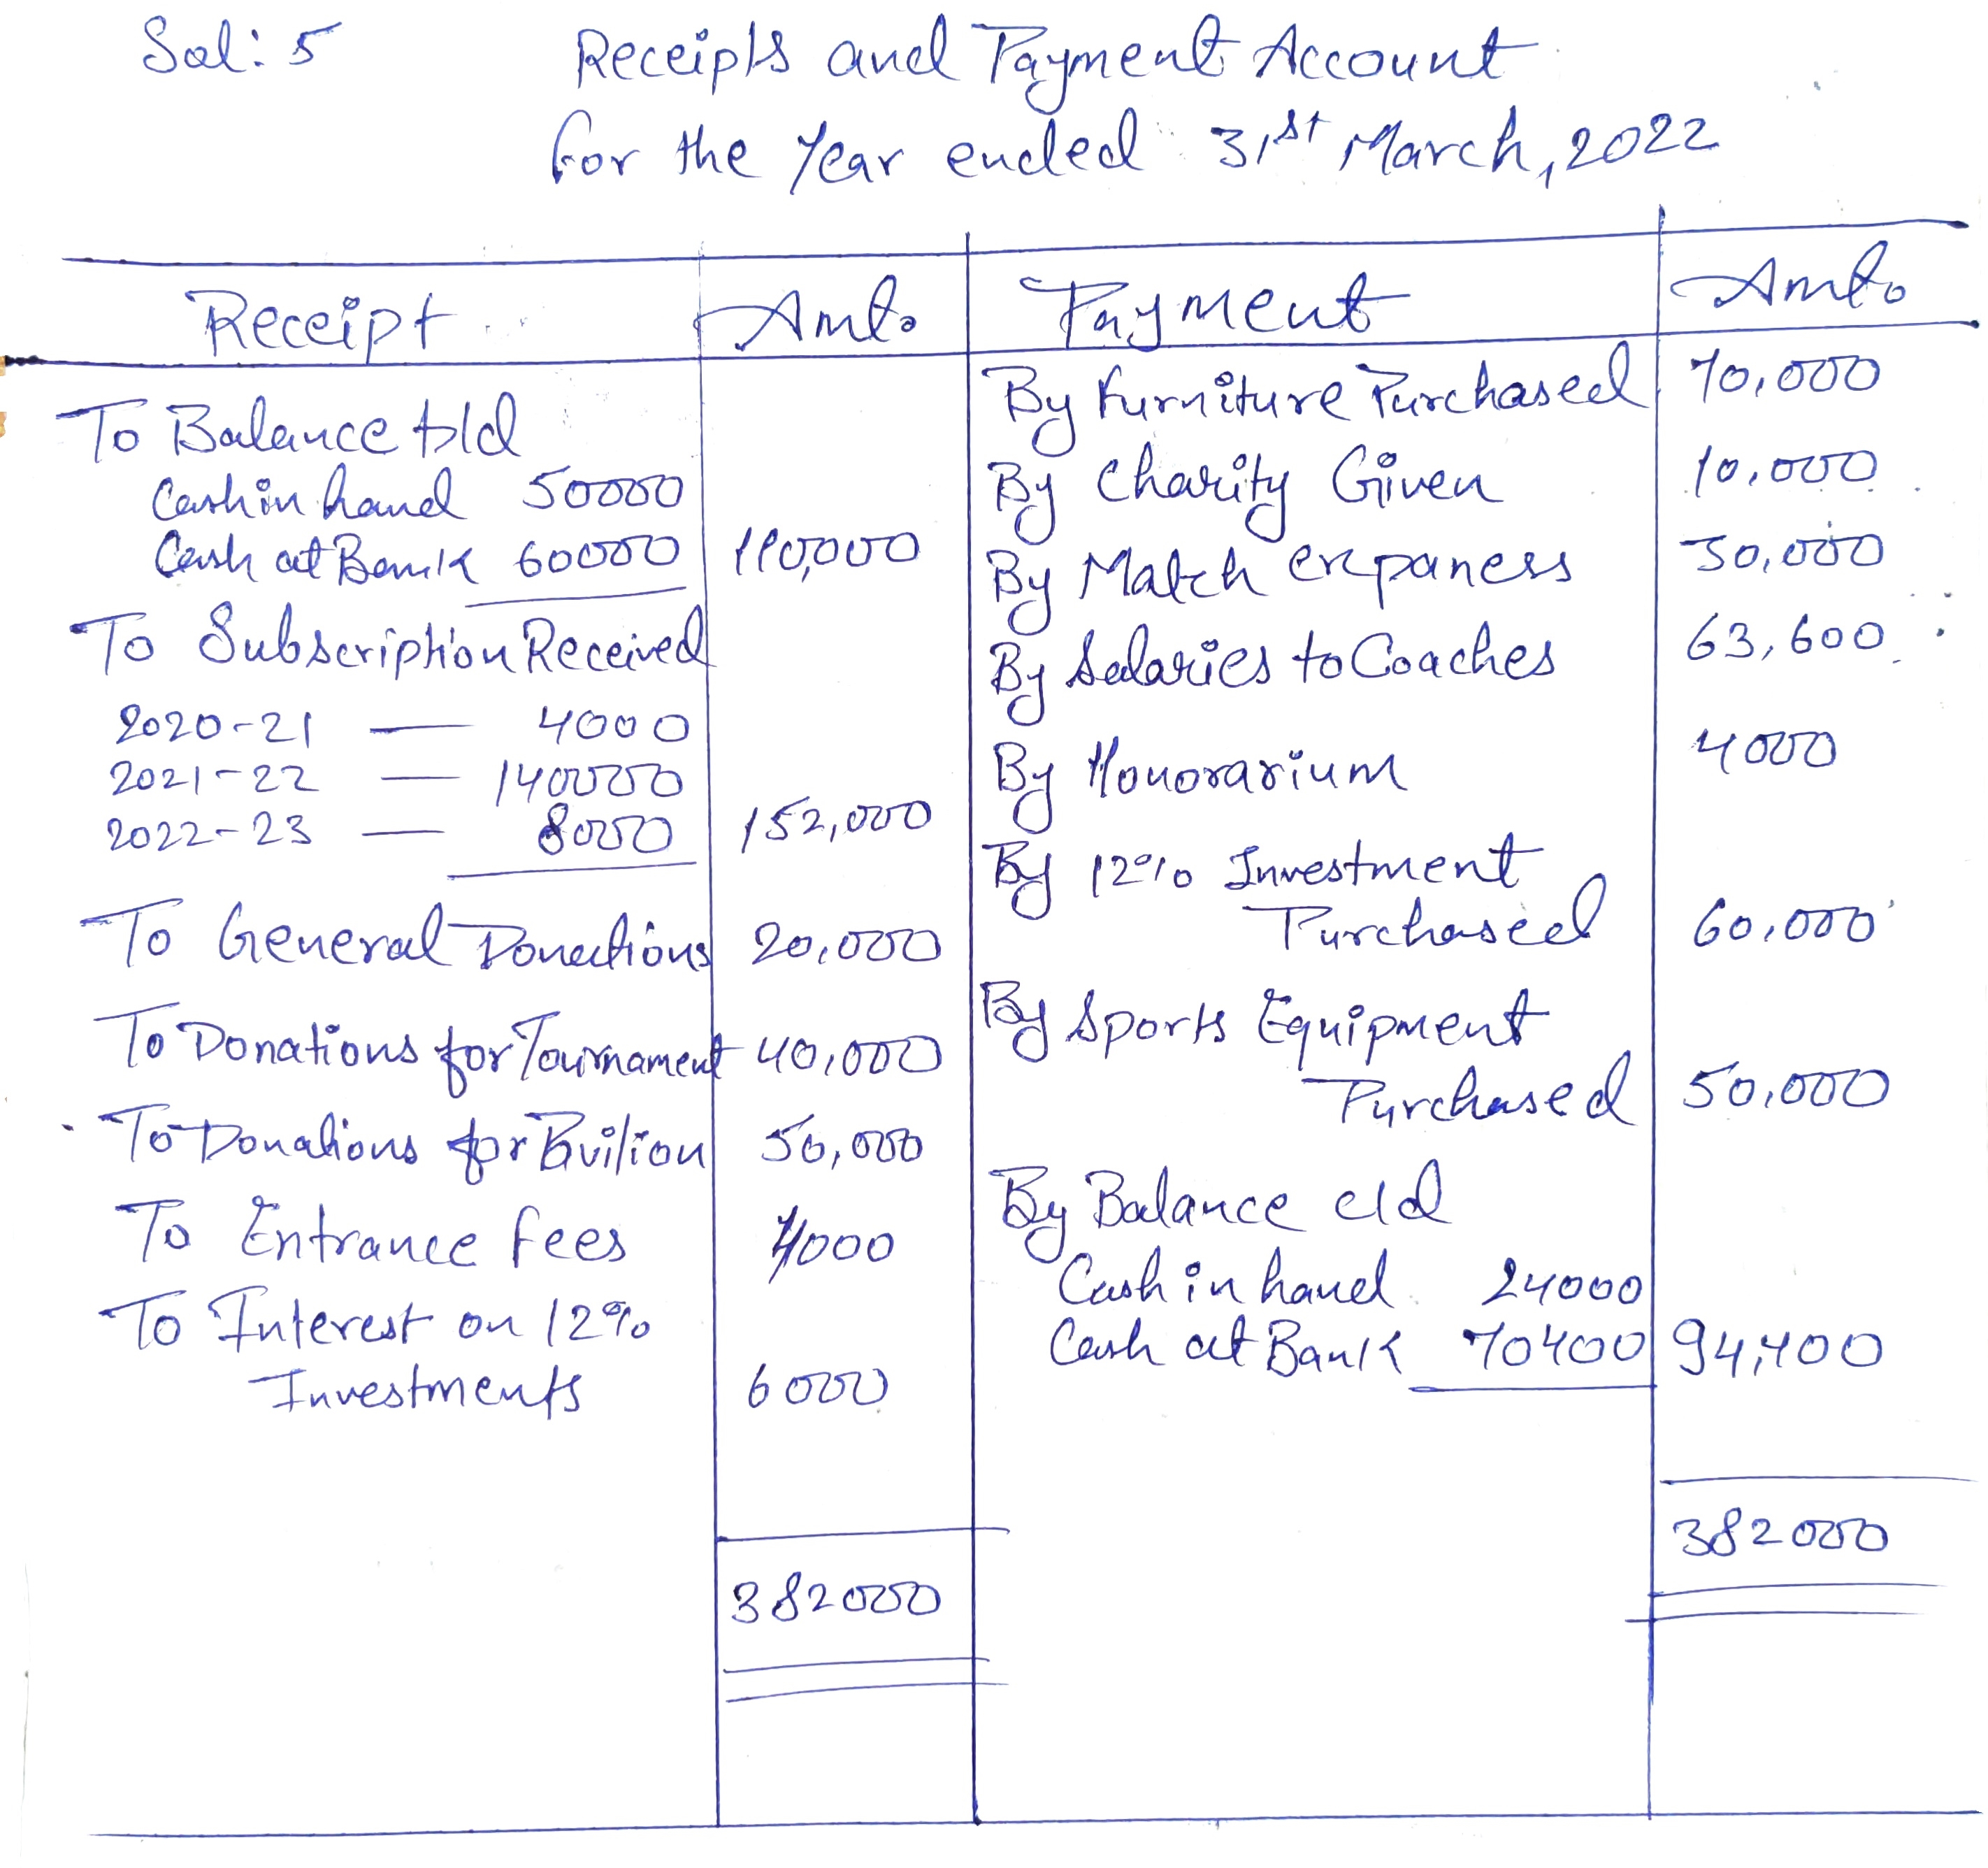 Sol: 5 Receipts and Payment Account
for the Year ended 31st March, 2022
Receipt Amt.
To Balance b/d
Cash in hand 50000
Cash at Bank 60000 110,000
To Subscription Received
2020-21 — 4000
2021-22 — 140000
2022-23 — 8000 152,000
To General Donations 20,000
To Donations for Tournament 40,000
To Donations for Pvilion 50,000
To Entrance fees 4000
To Interest on 12%
Investments 6000
382000
Payment Amt.
By Furniture Purchased 70,000
By Charity Given 10,000
By Match expaness 30,000
By Salaries to Coaches 63,600
By Honorarium 4000
By 12% Investment
Purchased 60,000
By Sports Equipment
Purchased 50,000
By Balance c/d
Cash in hand 24000
Cash at Bank 70400 94,400
382000